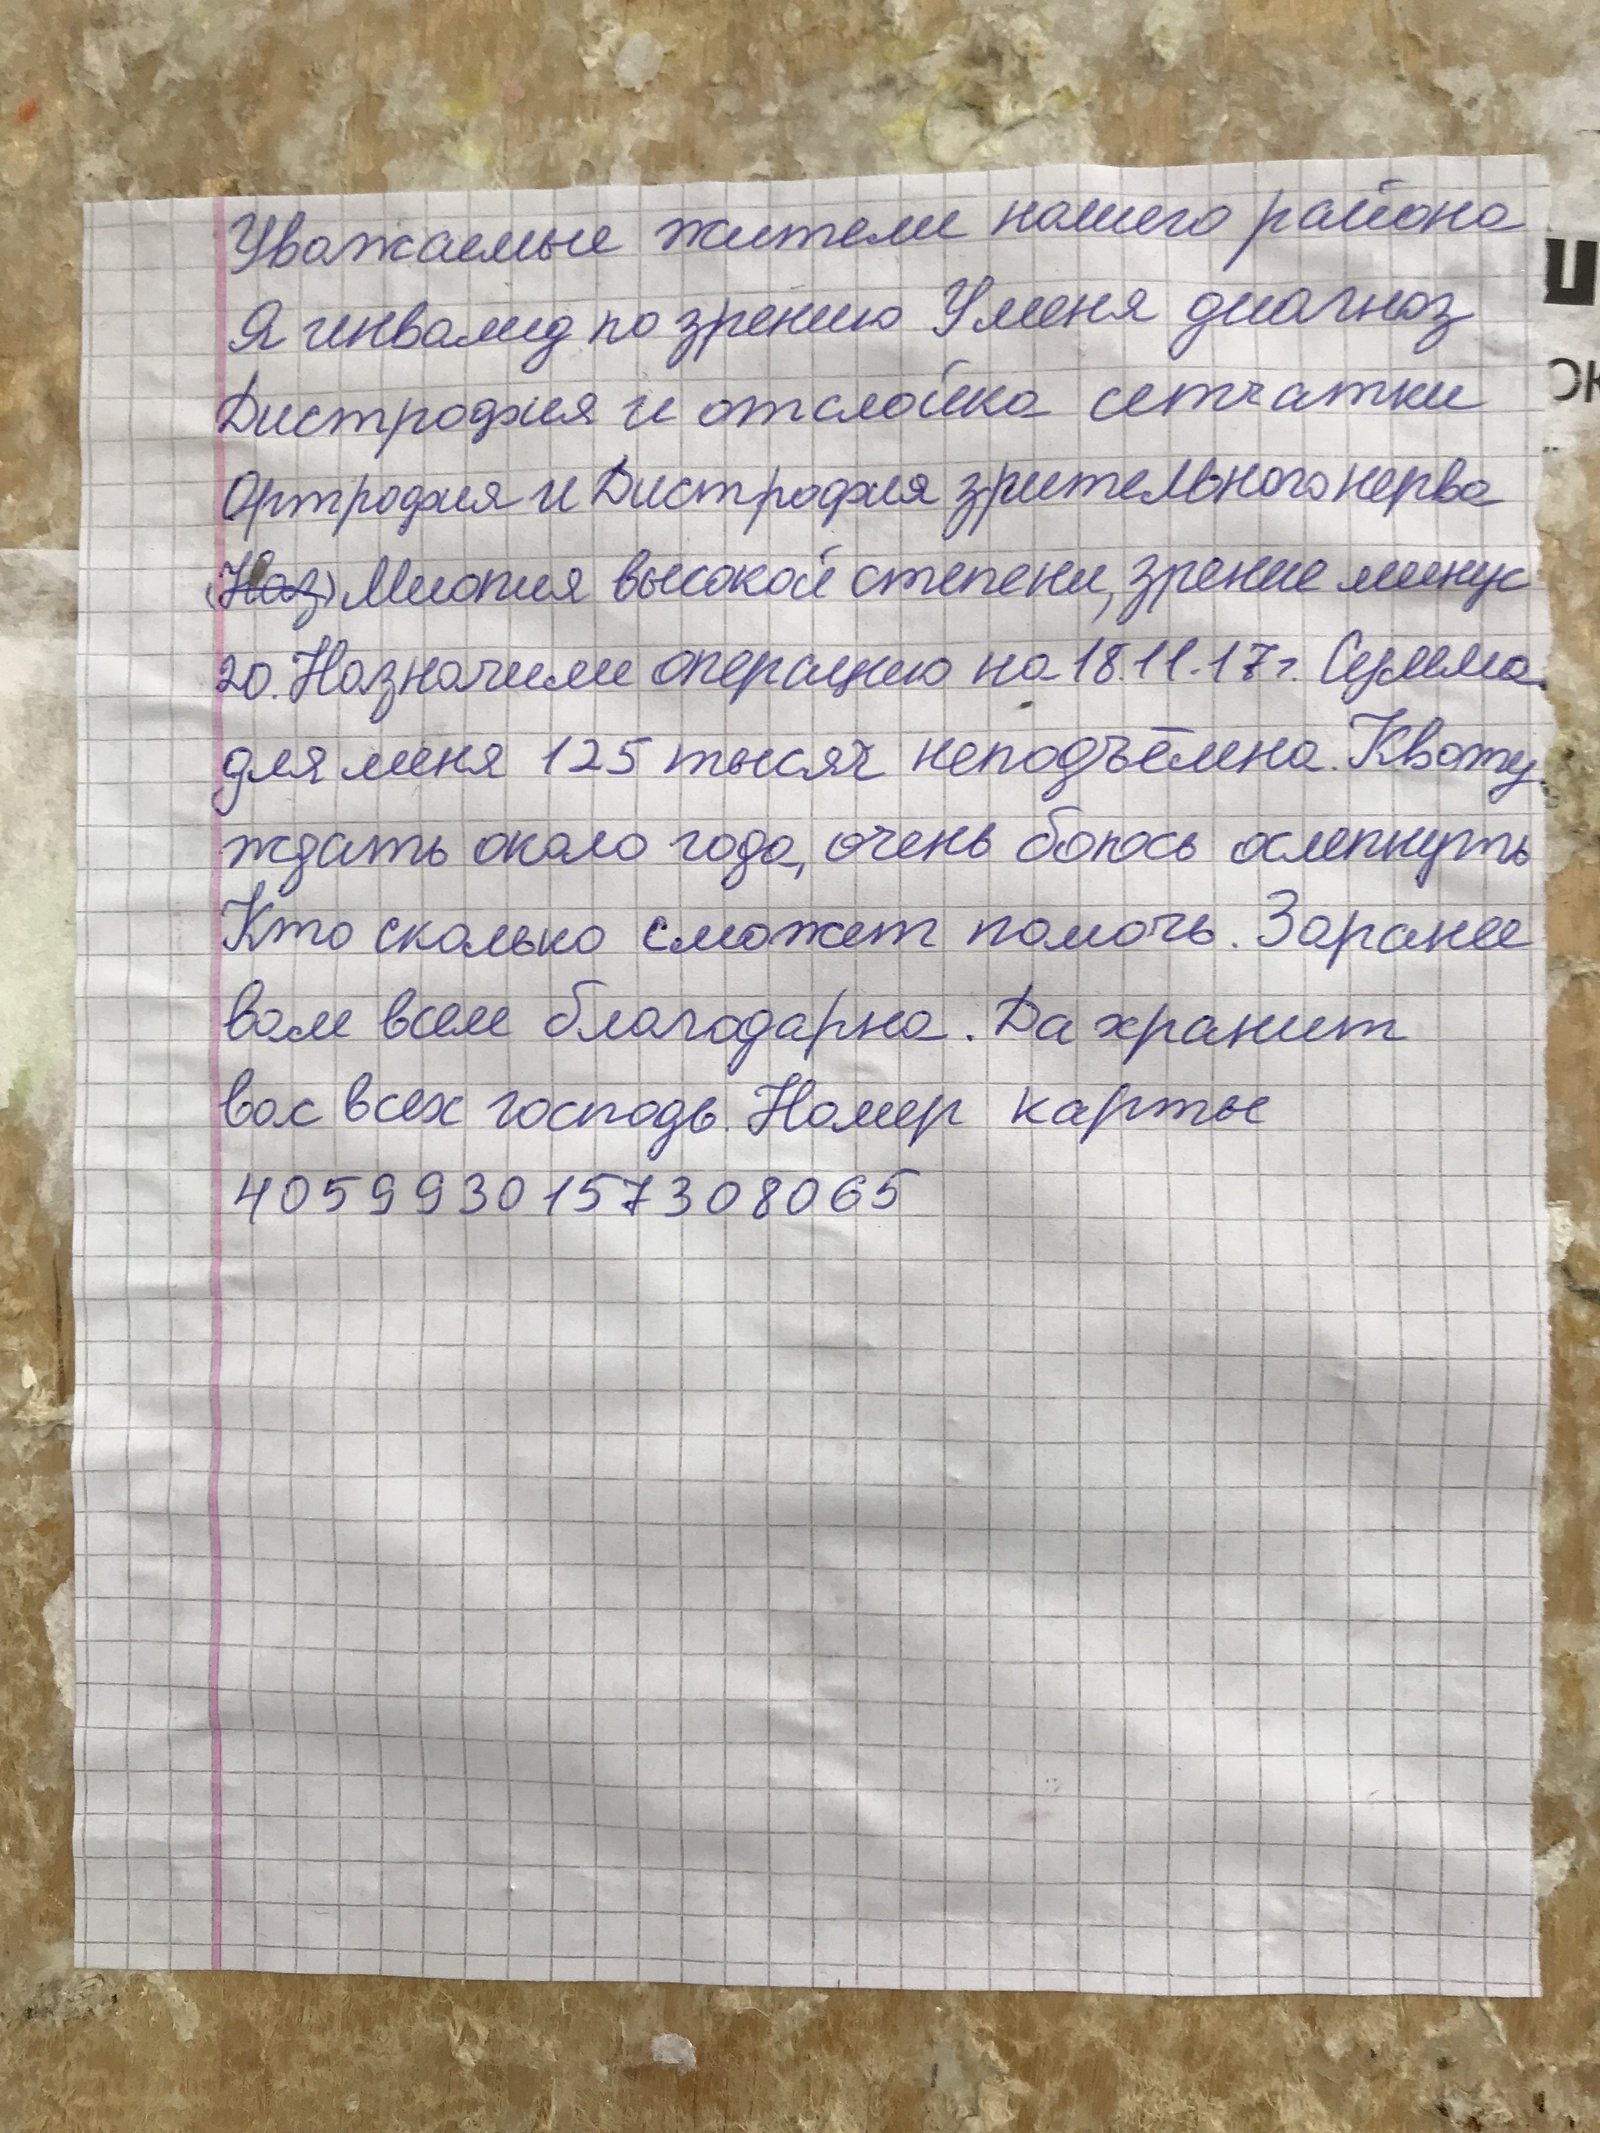 Уважаемые жители нашего района
Я инвалид по зрению У меня диагноз
Дистрофия и отслойка сетчатки
Ортрофия и Дистрофия зрительного нерва
(Наз) Миопия высокой степени, зрение минус
20. Назначили операцию на 18.11.17г. Сумма
для меня 125 тысяч неподъёмна. Квоту
ждать около года, очень боюсь ослепнуть
Кто сколько сможет помочь. Заранее
вам всем благодарна. Да хранит
вас всех господь. Номер карты
4059930157308065
Ш
ОК